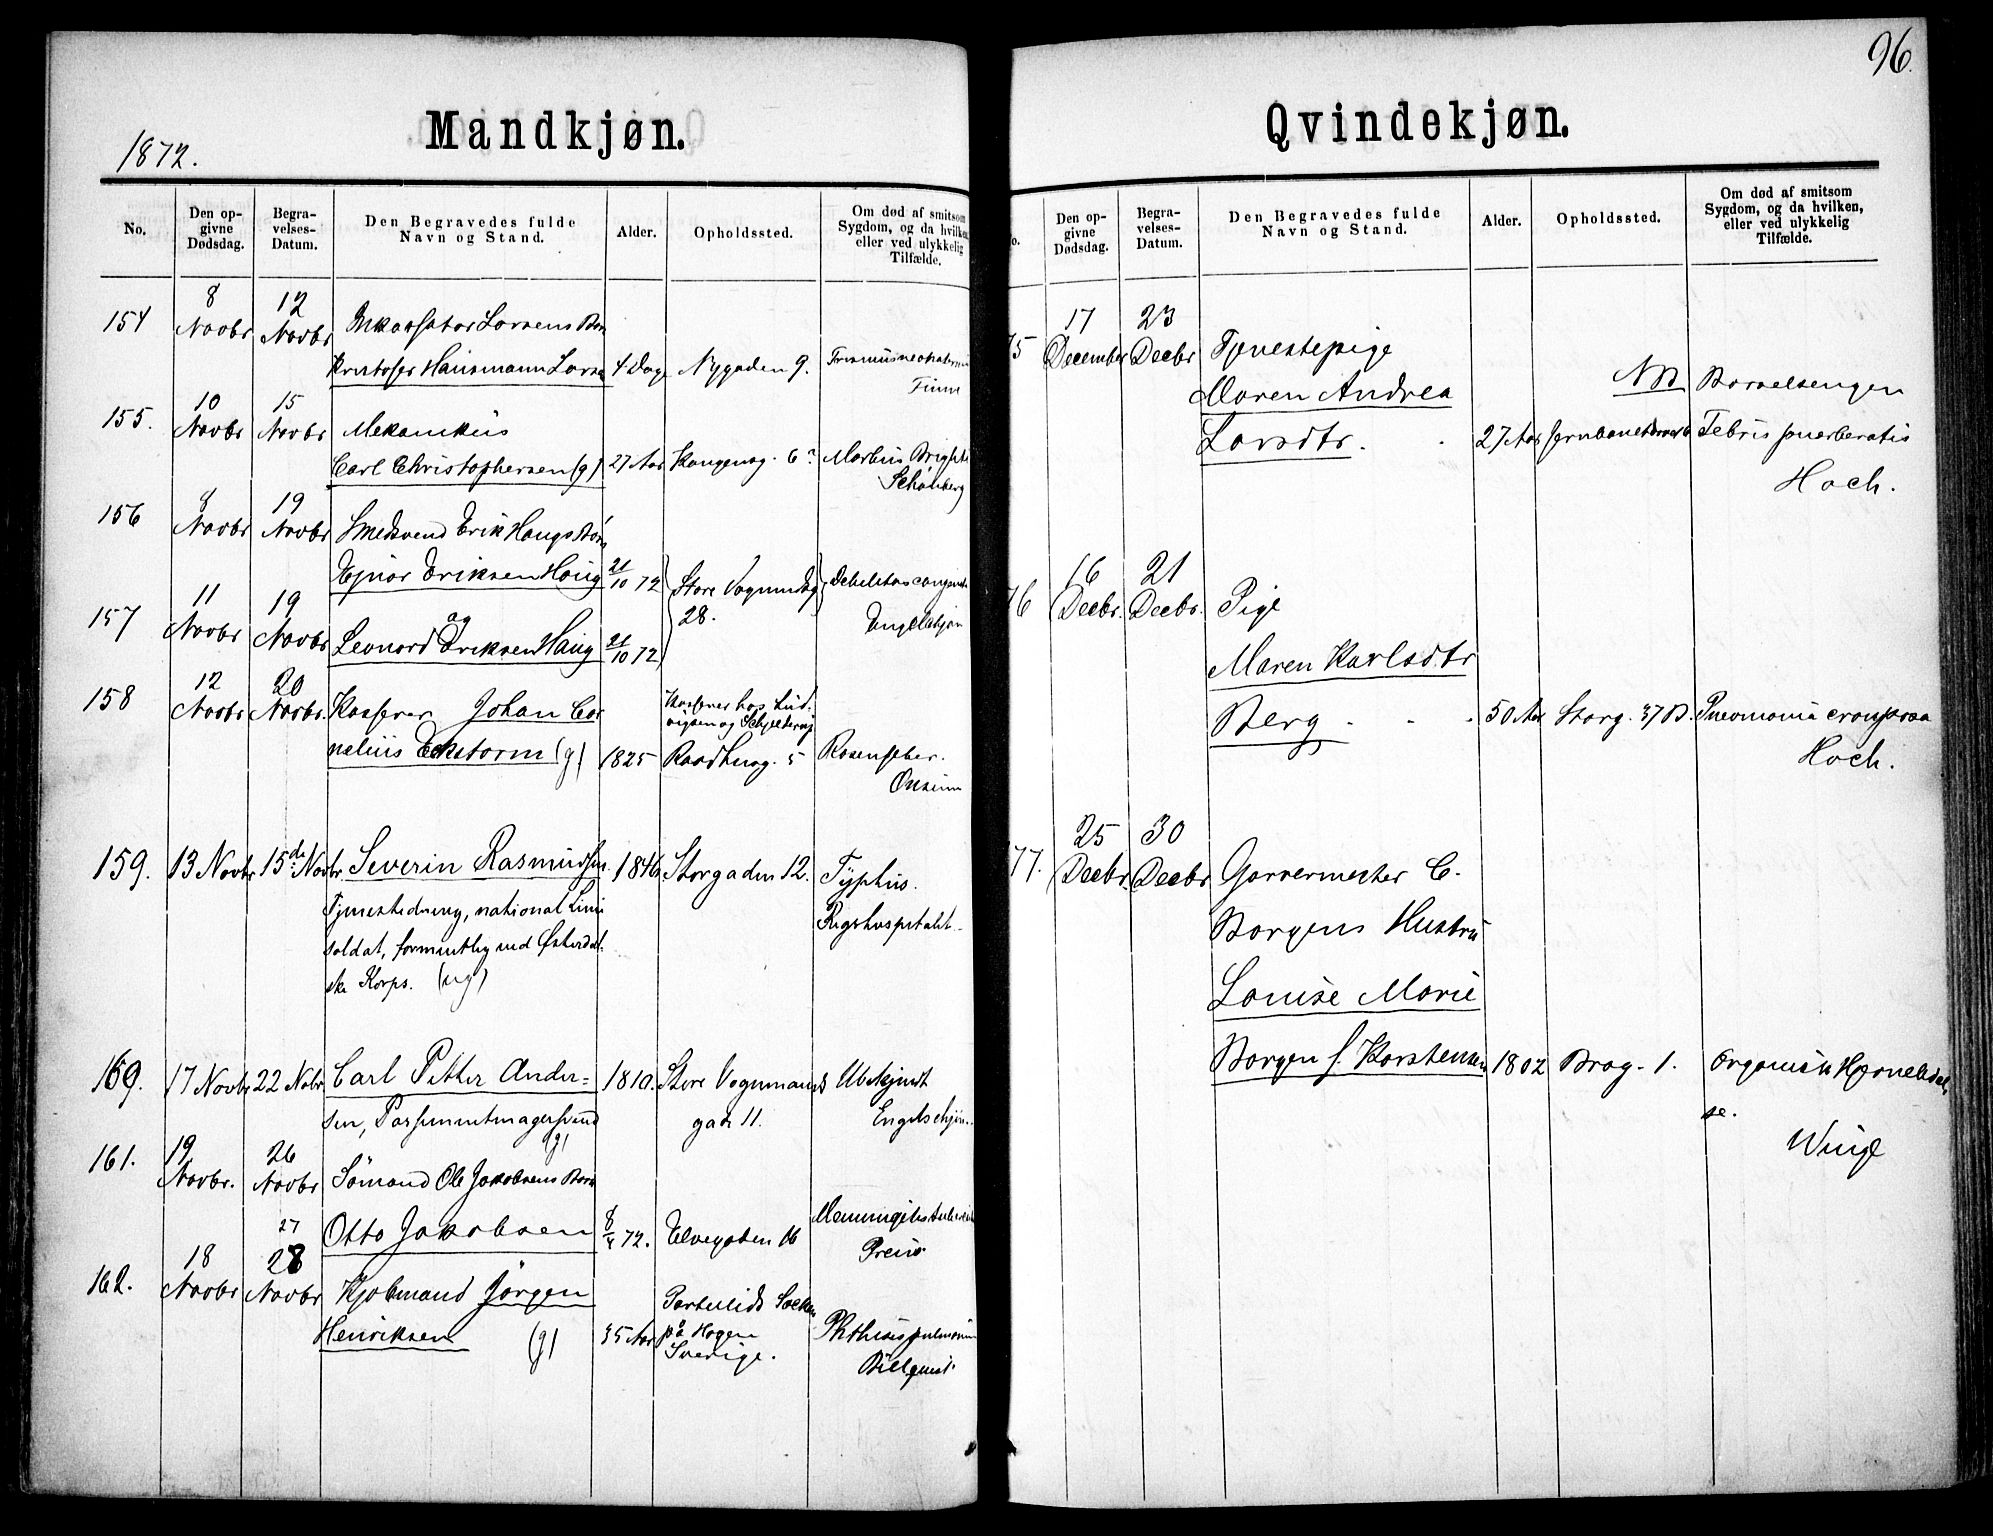 96.
1872.
Mandkjøn.
No.
Den opgivne Dødsdag.
Begravelses-Datum.
Den Begravedes fulde Navn og Stand.
Alder.
Opholdssted.
Om død af smitsom Sygdom, og da hvilken, eller ved ulykkelig Tilfælde.
154
8 Novbr
12 Novbr
Larsens Barn
Hansmann Larsen
4 Dage
Nygaden 9.
155.
10 Novbr
15 Novbr
Mekanikus
Carl Christophersen (g)
27 Aar
Kongensg. 6
Morbus Brightii
Schønberg
156
8 Novbr
19 Novbr
Smedsvend Erik Haugs Børn
Ejnar Eriksen Haug
21/10 72
Store Vognmdsg
28.
Engelskjøn
157
11 Novbr
19 Novbr
og
Leonard Eriksen Haug
21/10 72
158
12 Novbr
20 Novbr.
Kasserer Johan Cor
nelius Eckstorm (g)
1825
Kasserer hos Lud-
vigsen og Schjelderup
Raadhusg. 5
Rosenfeber.
159.
13 Novbr
15de Novbr.
Severin Rasmussen
Tjenestedreng, national Linie
soldat, formentlig ved Østerdal-
ske Korps. (ug)
1846
Storgaden 12.
Typhus.
Rigshospitalet.
160.
17 Novbr
22 Nobr
Carl Petter Ander-
sen, Parfumentmagersvend
(g)
1810.
Store Vognmands
gade 11.
Ubekjendt
Engelschjøn.
161.
19 Novbr.
26 Novbr
Sømand Ole Jakobsens Barn
Otto Jakobsen
72.
Elvegaden 16
27
162.
18 Novbr
28 Novbr
Kjøbmand Jørgen
Henriksen (g)
35 Aar
Socken
på Hogen
Sverige.
Phthisis pulmonum
Billquist
Qvindekjøn.
Den opgivne Dødsdag.
Begravelses-Datum.
Den Begravedes fulde Navn og Stand.
Alder.
Opholdssted.
Om død af smitsom Sygdom, og da hvilken, eller ved ulykkelig Tilfælde.
75
17 December
23 Decbr
Tjenestepige
Maren Andrea
Larsdtr.
27 Aar
NB Barselsengen
Febris puerberalis
Hoch.
76
16 Decbr.
21 Decbr.
Pige
Maren Karlsdtr
Berg
50 Aar
Storg. 37 B.
Pneumonia crouposa
Hoch.
77.
25 Decbr.
30 Decbr
Garvermester C.
Borgens Hustru
Louise Marie
Borgen f. Karstensen
1802
Brog. 1.
Organisk Hjertelidel
se.
Winge